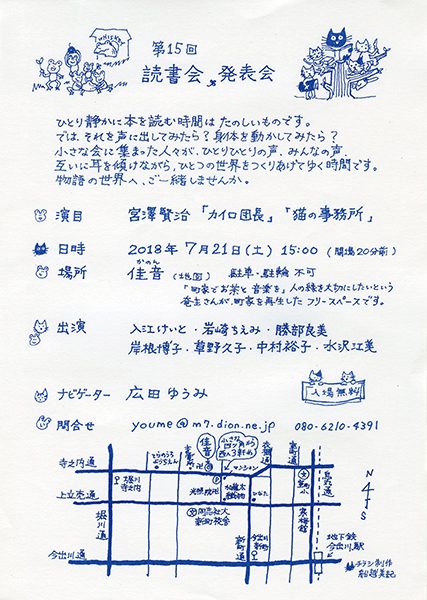 第15回
読書会、発表会
ひとり静かに本を読む時間は たのしいものです。
では、それを声に出してみたら？身体を動かしてみたら？
小さな会に集まった人々が、ひとりひとりの声、みんなの声、
互いに耳を傾けながら、ひとつの世界をつくりあげてゆく時間です。
物語の世界へ、ご一緒しませんか。
演目 宮澤賢治「カイロ団長」「猫の事務所」
日時 2018年7月21日(土) 15:00 (開場20分前)
かのん
場所 佳音 (地図) 駐車・駐輪 不可
「町家でお茶と音楽を」人の縁を大切にしたいという
庵主さんが、町家を再生した フリースペースです。
出演 入江けいと・岩崎ちえみ・勝部良美
岸根博子・草野久子・中村裕子・水沢江美
ナビゲーター 広田ゆうみ
入場無料
問合せ youme@m7.dion.ne.jp 080-6210-4391
佳音
小さな四ツ角から西へ3軒め
マンション
寺之内通
上立売通
今出川通
堀川通
堀川寺之内
衣棚通
室町通
烏丸通
新町通
室町小
光照院
同志社大新町校舎
今出川新町
寒梅館
地下鉄今出川駅
N
S
チラシ制作